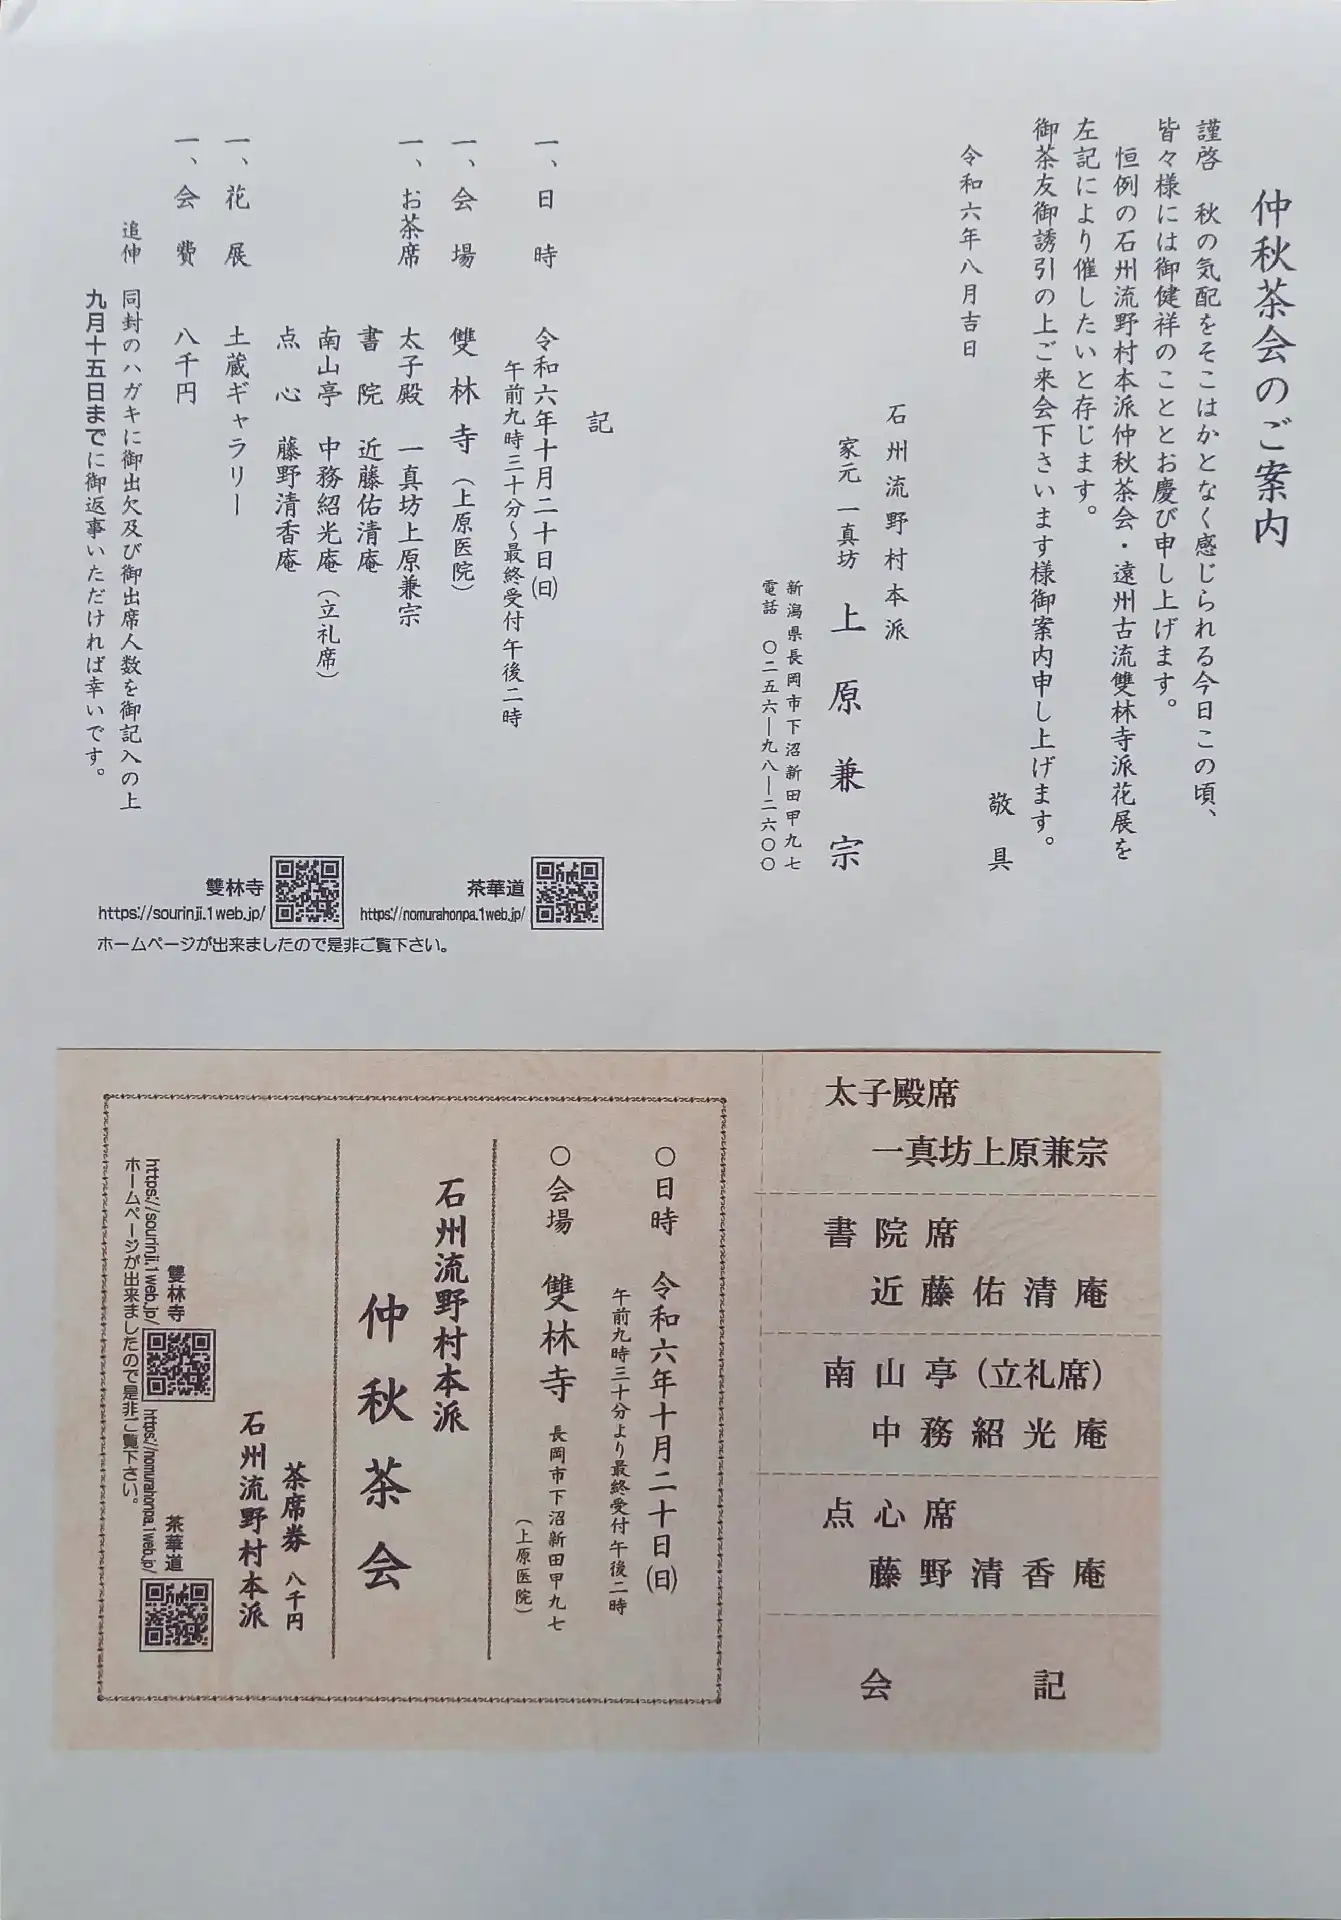 仲秋茶会のご案内
謹啓　秋の気配をそこはかとなく感じられる今日この頃、
皆々様には御健祥のこととお慶び申し上げます。
恒例の石州流野村本派仲秋茶会・遠州古流雙林寺派花展を
左記により催したいと存じます。
御茶友御誘引の上ご来会下さいます様御案内申し上げます。
敬具
令和六年八月吉日
石州流野村本派
家元　一真坊　上原兼宗
新潟県長岡市下沼新田甲九七
電話　〇二五六―九八―二六〇〇
記
一、日時　令和六年十月二十日(日)
午前九時三十分～最終受付　午後二時
一、会場　雙林寺（上原医院）
一、お茶席　太子殿　一真坊上原兼宗
書院　近藤佑清庵
南山亭　中務紹光庵（立礼席）
点心　藤野清香庵
一、花展　土蔵ギャラリー
一、会費　八千円
追伸　同封のハガキに御出欠及び御出席人数を御記入の上
九月十五日までに御返事いただければ幸いです。
茶華道
https://nomurahonpa.1web.jp/
雙林寺
https://sourinji.1web.jp/
ホームページが出来ましたので是非ご覧下さい。
太子殿席
一真坊上原兼宗
書院席
近藤佑清庵
南山亭（立礼席）
中務紹光庵
点心席
藤野清香庵
会記
〇日時　令和六年十月二十日(日)
午前九時三十分より最終受付　午後二時
〇会場　雙林寺　長岡市下沼新田甲九七
（上原医院）
石州流野村本派
仲秋茶会
茶席券　八千円
石州流野村本派
雙林寺
https://sourinji.1web.jp/
茶華道
https://nomurahonpa.1web.jp/
ホームページが出来ましたので是非ご覧下さい。